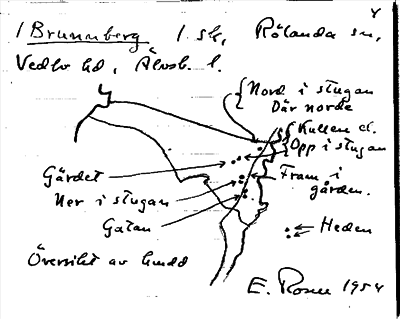 Y
/ Brunnberg / sk, Rölanda sn,
Vedbo hd, Älvsb. l.
Nord i stugan
Där norde
Kullen el.
Opp i stugan
Gärdet
Fram i
gården.
Ner i stugan
Gatan
Heden
Översikt av
E. Rosen 1954